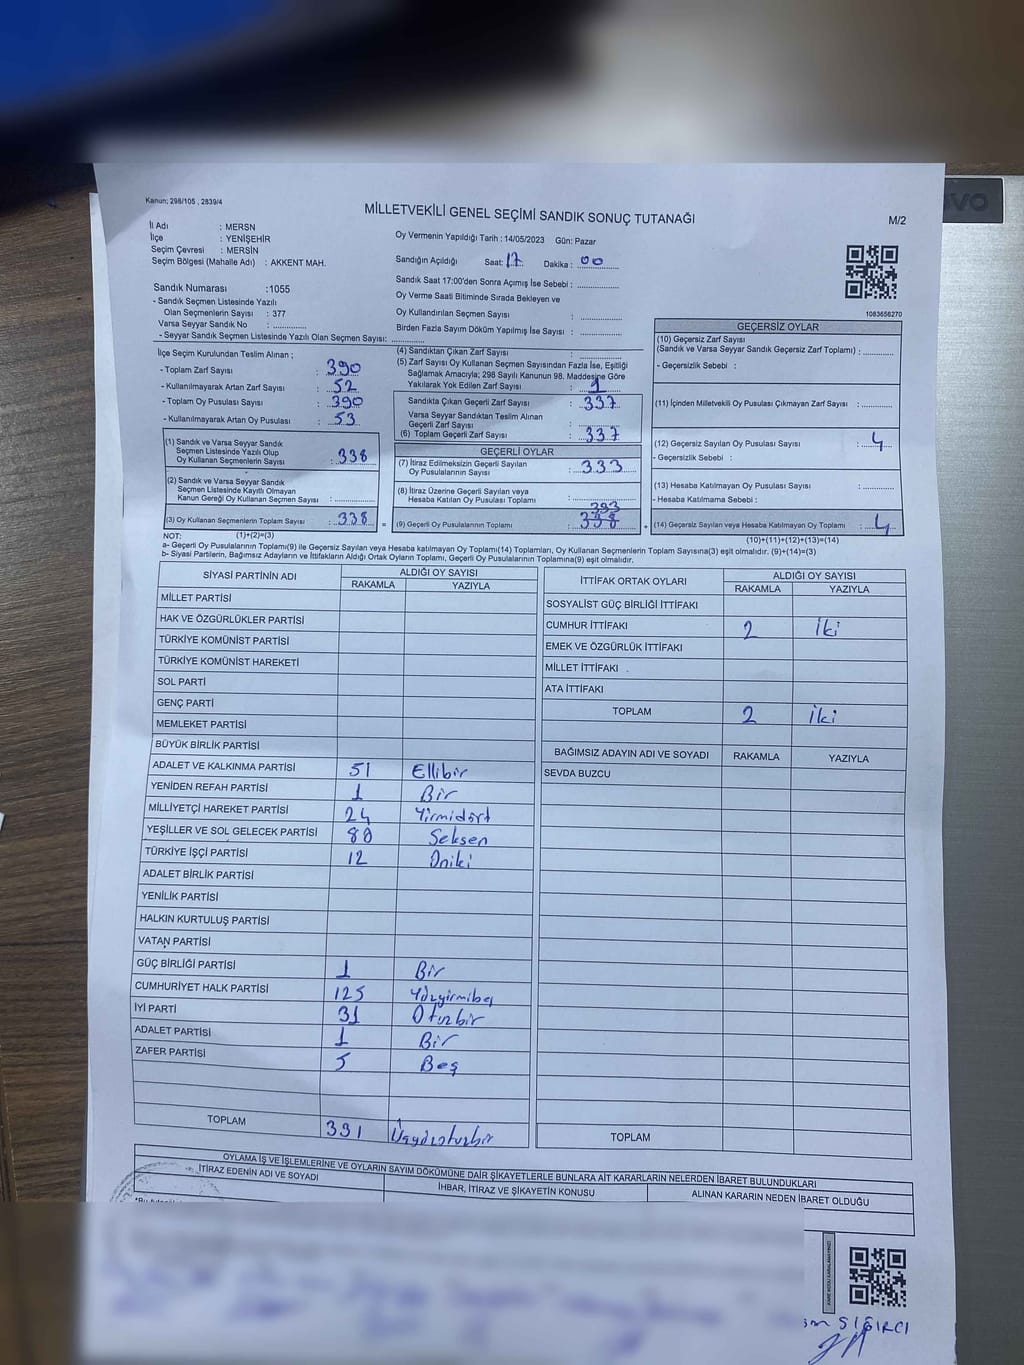 Kanun; 298/105 , 2839/4
MİLLETVEKİLİ GENEL SEÇİMİ SANDIK SONUÇ TUTANAĞI
M/2
İl Adı : MERSN
İlçe : YENİŞEHİR
Seçim Çevresi : MERSİN
Seçim Bölgesi (Mahalle Adı) : AKKENT MAH.
Oy Vermenin Yapıldığı Tarih : 14/05/2023 Gün: Pazar
Sandığın Açıldığı Saat: 17 Dakika : 00
Sandık Saat 17:00'den Sonra Açımış İse Sebebi :
Oy Verme Saati Bitiminde Sırada Bekleyen ve
Oy Kullandırılan Seçmen Sayısı :
Birden Fazla Sayım Döküm Yapılmış İse Sayısı :
1083656270
Sandık Numarası :1055
- Sandık Seçmen Listesinde Yazılı
Olan Seçmenlerin Sayısı : 377
Varsa Seyyar Sandık No :
- Seyyar Sandık Seçmen Listesinde Yazılı Olan Seçmen Sayısı:
İlçe Seçim Kurulundan Teslim Alınan ;
- Toplam Zarf Sayısı : 390
- Kullanılmayarak Artan Zarf Sayısı : 52
- Toplam Oy Pusulası Sayısı : 390
- Kullanılmayarak Artan Oy Pusulası : 53
(1) Sandık ve Varsa Seyyar Sandık
Seçmen Listesinde Yazılı Olup
Oy Kullanan Seçmenlerin Sayısı : 338
(2) Sandık ve Varsa Seyyar Sandık
Seçmen Listesinde Kayıtlı Olmayan
Kanun Gereği Oy Kullanan Seçmen Sayısı :
(3) Oy Kullanan Seçmenlerin Toplam Sayısı : 338
(4) Sandıktan Çıkan Zarf Sayısı :
(5) Zarf Sayısı Oy Kullanan Seçmen Sayısından Fazla İse, Eşitliği
Sağlamak Amacıyla; 298 Sayılı Kanunun 98. Maddesine Göre
Yakılarak Yok Edilen Zarf Sayısı : 1
Sandıkta Çıkan Geçerli Zarf Sayısı : 337
Varsa Seyyar Sandıktan Teslim Alınan
Geçerli Zarf Sayısı :
(6) Toplam Geçerli Zarf Sayısı : 337
GEÇERLİ OYLAR
(7) İtiraz Edilmeksizin Geçerli Sayılan
Oy Pusulalarının Sayısı : 333
(8) İtiraz Üzerine Geçerli Sayılan veya
Hesaba Katılan Oy Pusulası Toplamı :
333
= (9) Geçerli Oy Pusulalarının Toplamı : 338
GEÇERSİZ OYLAR
(10) Geçersiz Zarf Sayısı
(Sandık ve Varsa Seyyar Sandık Geçersiz Zarf Toplamı) :
- Geçersizlik Sebebi :
(11) İçinden Milletvekili Oy Pusulası Çıkmayan Zarf Sayısı :
(12) Geçersiz Sayılan Oy Pusulası Sayısı : 4
- Geçersizlik Sebebi :
(13) Hesaba Katılmayan Oy Pusulası Sayısı :
- Hesaba Katılmama Sebebi :
+ (14) Geçersiz Sayılan veya Hesaba Katılmayan Oy Toplamı : 4
NOT: (1)+(2)=(3)
(10)+(11)+(12)+(13)=(14)
a- Geçerli Oy Pusulalarının Toplamı(9) ile Geçersiz Sayılan veya Hesaba katılmayan Oy Toplamı(14) Toplamları, Oy Kullanan Seçmenlerin Toplam Sayısına(3) eşit olmalıdır. (9)+(14)=(3)
b- Siyasi Partilerin, Bağımsız Adayların ve İttifakların Aldığı Ortak Oyların Toplamı, Geçerli Oy Pusulalarının Toplamına(9) eşit olmalıdır.
SİYASİ PARTİNİN ADI
ALDIĞI OY SAYISI
RAKAMLA YAZIYLA
MİLLET PARTİSİ
HAK VE ÖZGÜRLÜKLER PARTİSİ
TÜRKİYE KOMÜNİST PARTİSİ
TÜRKİYE KOMÜNİST HAREKETİ
SOL PARTİ
GENÇ PARTİ
MEMLEKET PARTİSİ
BÜYÜK BİRLİK PARTİSİ
ADALET VE KALKINMA PARTİSİ 51 Ellibir
YENİDEN REFAH PARTİSİ 1 Bir
MİLLİYETÇİ HAREKET PARTİSİ 24 Yirmidört
YEŞİLLER VE SOL GELECEK PARTİSİ 80 Seksen
TÜRKİYE İŞÇİ PARTİSİ 12 Oniki
ADALET BİRLİK PARTİSİ
YENİLİK PARTİSİ
HALKIN KURTULUŞ PARTİSİ
VATAN PARTİSİ
GÜÇ BİRLİĞİ PARTİSİ 1 Bir
CUMHURİYET HALK PARTİSİ 125 Yüzyirmibeş
İYİ PARTİ 31 Otuzbir
ADALET PARTİSİ 1 Bir
ZAFER PARTİSİ 5 Beş
TOPLAM 331 Üçyüzotuzbir
İTTİFAK ORTAK OYLARI
ALDIĞI OY SAYISI
RAKAMLA YAZIYLA
SOSYALİST GÜÇ BİRLİĞİ İTTİFAKI
CUMHUR İTTİFAKI 2 İki
EMEK VE ÖZGÜRLÜK İTTİFAKI
MİLLET İTTİFAKI
ATA İTTİFAKI
TOPLAM 2 İki
BAĞIMSIZ ADAYIN ADI VE SOYADI RAKAMLA YAZIYLA
SEVDA BUZCU
TOPLAM
OYLAMA İŞ VE İŞLEMLERİNE VE OYLARIN SAYIM DÖKÜMÜNE DAİR ŞİKAYETLERLE BUNLARA AİT KARARLARIN NELERDEN İBARET BULUNDUKLARI
İTİRAZ EDENİN ADI VE SOYADI
İHBAR, İTİRAZ VE ŞİKAYETİN KONUSU
ALINAN KARARIN NEDEN İBARET OLDUĞU
SIĞIRCI